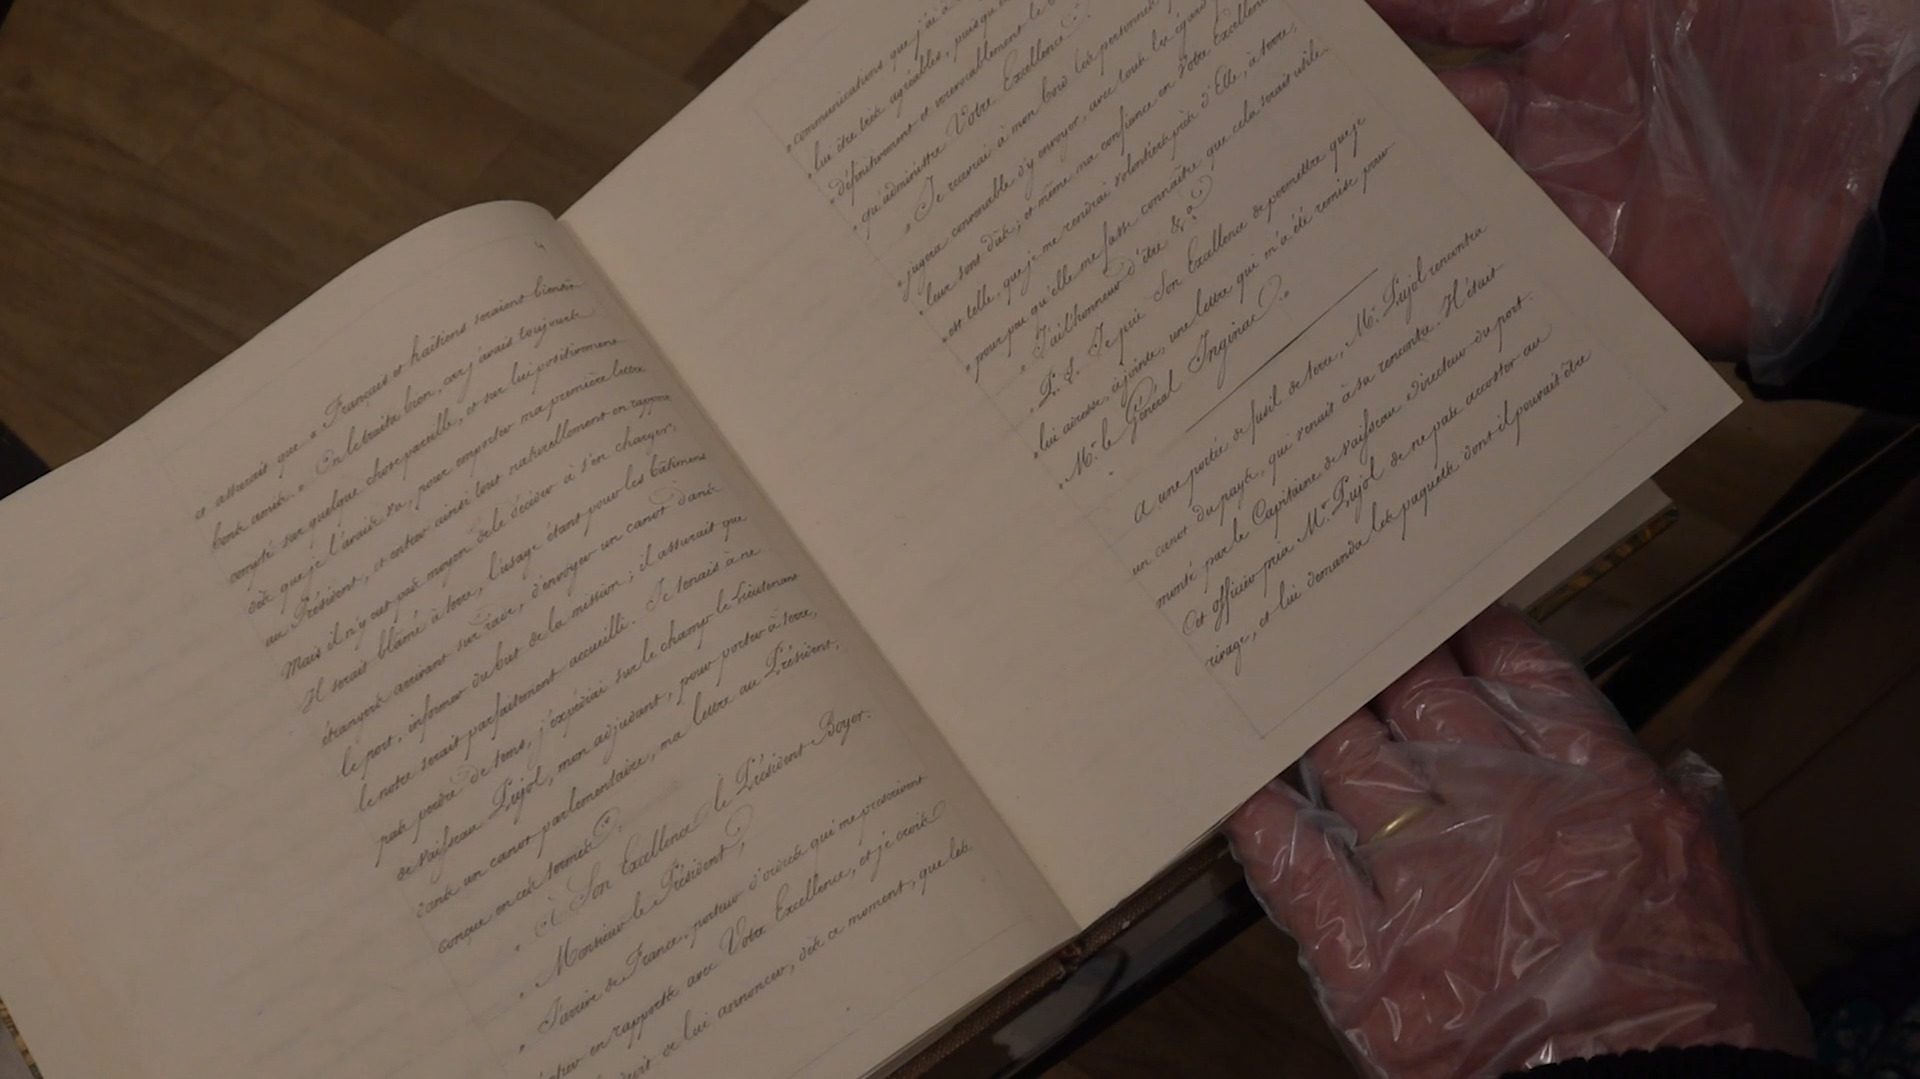 4
et assurait que « Français et haïtiens seraient bien
bons amis. » On le traita bien, car j'avais toujours
compté sur quelque chose pareille, et sur lui positivement
dès que je l'avais vu, pour emporter ma première lettre
au Président, et entrer ainsi tout naturellement en rapport
Mais il n'y eut pas moyen de le décider à s'en charger.
Il serait blâmé à terre, l'usage étant pour les bâtimens
étrangers arrivant sur rade, d'envoyer un canot dans
le port, informer du but de la mission; il assurait que
le notre serait parfaitement accueilli. Je tenais à ne
pas perdre de tems, j'expédiai sur le champ le Lieutenant
de vaisseau Pujol, mon adjudant, pour porter à terre,
dans un canot parlementaire, ma lettre au Président,
conçue en ces termes:
« à Son Excellence le Président Boyer.
» Monsieur le Président,
» J'arrive de France, porteur d'ordres qui me prescrivent
entrer en rapports avec Votre Excellence, et je crois
de lui annoncer, dès ce moment, que les
» communications que j'ai à
» lui être très agréables, puisqu'
» définitivement et irrévocablement le
» qu'administre Votre Excellence.
» Je recevrai à mon bord les personnes
» jugera convenable d'y envoyer, avec tous les égards
» leur sont dûs; et même ma confiance en Votre Excellence
» est telle, que je me rendrai volontiers près d'Elle, à terre,
» pour peu qu'elle me fasse connaître que cela serait utile.
» J'ai l'honneur d'être &a
» P. S. Je prie Son Excellence de permettre que je
» lui adresse, ci-jointe, une lettre qui m'a été remise pour
» Mr. le Général Inginac.
A une portée de fusil de terre, Mr. Pujol rencontra
un canot du pays, qui venait à sa rencontre. Il était
monté par le Capitaine de vaisseau directeur du port.
Cet officier pria Mr. Pujol de ne pas accoster au
rivage, et lui demanda les paquets dont il pouvait être